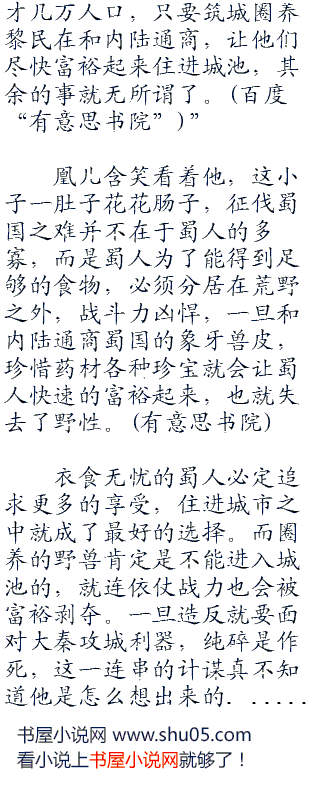 才几万人口，只要筑城圈养
黎民在和内陆通商，让他们
尽快富裕起来住进城池，其
余的事就无所谓了。(百度
“有意思书院”)”
凰儿含笑看着他，这小
子一肚子花花肠子，征伐蜀
国之难并不在于蜀人的多
寡，而是蜀人为了能得到足
够的食物，必须分居在荒野
之外，战斗力凶悍，一旦和
内陆通商蜀国的象牙兽皮，
珍惜药材各种珍宝就会让蜀
人快速的富裕起来，也就失
去了野性。(有意思书院)
衣食无忧的蜀人必定追
求更多的享受，住进城市之
中就成了最好的选择。而圈
养的野兽肯定是不能进入城
池的，就连依仗战力也会被
富裕剥夺。一旦造反就要面
对大秦攻城利器，纯碎是作
死，这一连串的计谋真不知
道他是怎么想出来的......
书屋小说网 www.shu05.com
看小说上书屋小说网就够了！